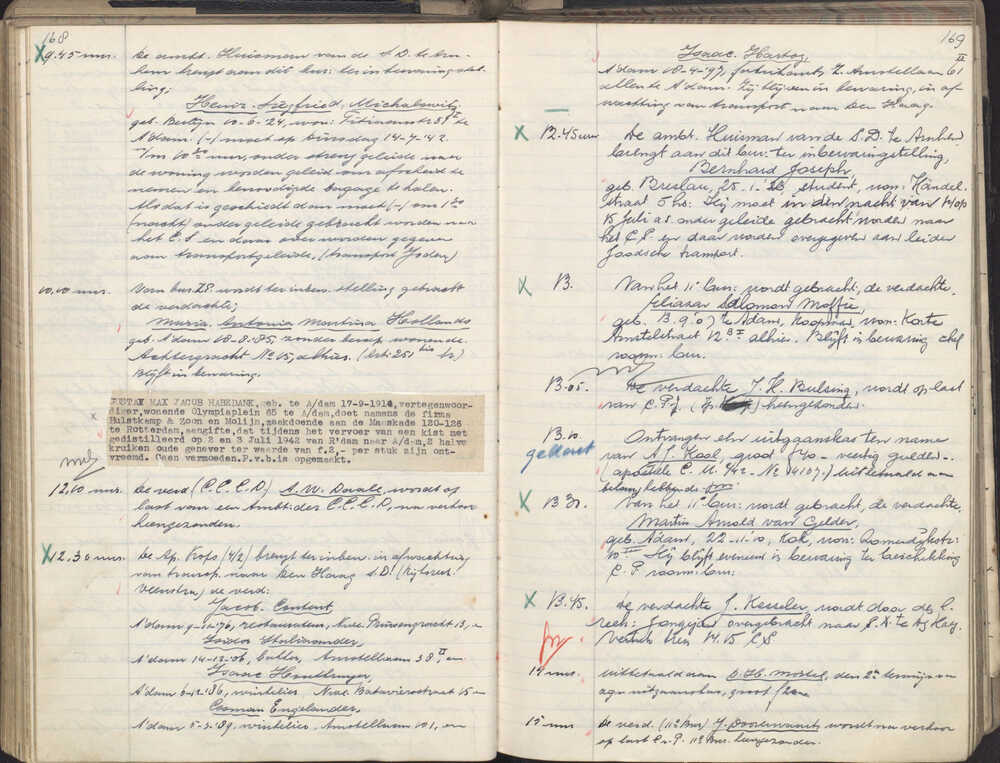 168
9.45 uur. De ambt. Huisman van de S.D. te Arn-
hem brengt aan dit bur: ter inbewaringstel-
ling;
Heinz Siegfried Michalowitz,
geb. Berlijn 10-6-24, won: Titiaanstr 31 te
A'dam. (-) moet op Dinsdag 14-7-42
10 uur, onder streng geleide naar
de woning worden geleid om afscheid te
nemen en benoodigde bagage te halen.
Als dat is geschied dan moet (-) om 1
(nacht) onder geleide gebracht worden naar
het C.S. en daar over worden gegeven
aan transportgeleide, (transport Joden)
10.10 uur. Van bur Z.P. wordt ter inbew. stelling gebracht
de verdachte;
Maria Antonia Martina Hollands
geb. A'dam 18-8-'85, zonder beroep wonende
Achtergracht No 15, alhier. (art: 251 bis Sr.)
Blijft in bewaring.
JUSTAV MAX JACOB HABEDANK, geb. te A/dam 17-9-1914, vertegenwoor-
diger, wonende Olympiaplein 65 te A/dam, doet namens de firma
Hulstkamp & Zoon en Molijn, zaakdoende aan de Mauskade 120-126
te Rotterdam, aangifte, dat tijdens het vervoer van een kist met
gedistilleerd op 2 en 3 Juli 1942 van R'dam naar A/dam, 2 halve
kruiken oude genever ter waarde van f.2,- per stuk zijn ont-
vreemd. Geen vermoeden. P.v.b. is opgemaakt.
12.10 uur. De verd (C.C.C.D) A.W. wordt op
last van een Ambt: des C.C.C.D, na verhoor
heengezonden.
12.30 uur. De Ap. Kops (4/2) brengt ter inbew: in afwachting
van transp. naar Den Haag S.D. (Rijksrech.
Veenstra) de verd:
Jacob Content
A'dam 9-11-'76, restaurateur, Nwe. Prinsengracht 13, en
Isidor
A'dam 14-12-06, Amstellaan 38 II, en
Isaac
A'dam 6-12-'86, winkelier, Batavierstraat 15 en
Coman Engelander,
A'dam 5-3-'89, winkelier, Amstellaan 101, en
169
Isaac Hartog,
A'dam 18-4-97, fabrikant, Z. Amstellaan 61 II
allen te A'dam. Zij blijven in bewaring, in af-
wachting van transport naar Den Haag.
12.45 uur De ambt. Huisman van de S.D. te Arnhem
brengt aan dit bur: ter inbewaringstelling,
Bernhard Joseph,
geb. Breslau, 25-1-'23, student, won: Händel-
straat 5 hs: Hij moet in den nacht van 14 op
15 Juli a.s. onder geleide gebracht worden naar
het C.S. en daar worden overgegeven aan leider
Joodsche transport.
13. Van het 11e bur: wordt gebracht, de verdachte
Eliazar Salomon Moffie,
geb. 13-9-07 te Adam, koopman, won: Korte
Amstelstraat 12 alhier. Blijft in bewaring chef
voorm: bur.
13.05. De verdachte J.H. Bulsing, wordt op last
van C.P.J. heengezonden.
13.10 Ontvangen een uitgaansbon ten name
geboekt van A.J. Kool, groot f 40.- veertig gulden.-
No 4107.) uitbetaald aan
belanghebbende.
13.30. Van het 11e bur: wordt gebracht, de verdachte,
Martin Arnold van Gelder,
geb. Adam, 22-11-10, kok, won: Lomendijkstr:
10 III Hij blijft eveneens in bewaring ter beschikking
C.P. voorm: bur:
13.45. De verdachte J. Kesseler, wordt door de
rech: Jongejan overgebracht naar S.D. te Den Haag.
Vertrek trein 14.15 CS
14 uur uitbetaald aan D.H. Mostel, den 2en termijn van
zijn uitgaansbon, groot
15 uur De verd. (11e Bur) J. wordt na verhoor
op last C.v.P. 11e Bur. heengezonden.